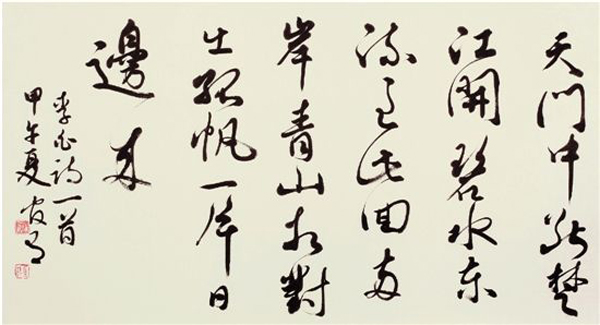 天門中斷楚
江開碧水東
流至此回两
岸青山相對
出孤帆一片日
邊来
李白詩一首
甲午夏